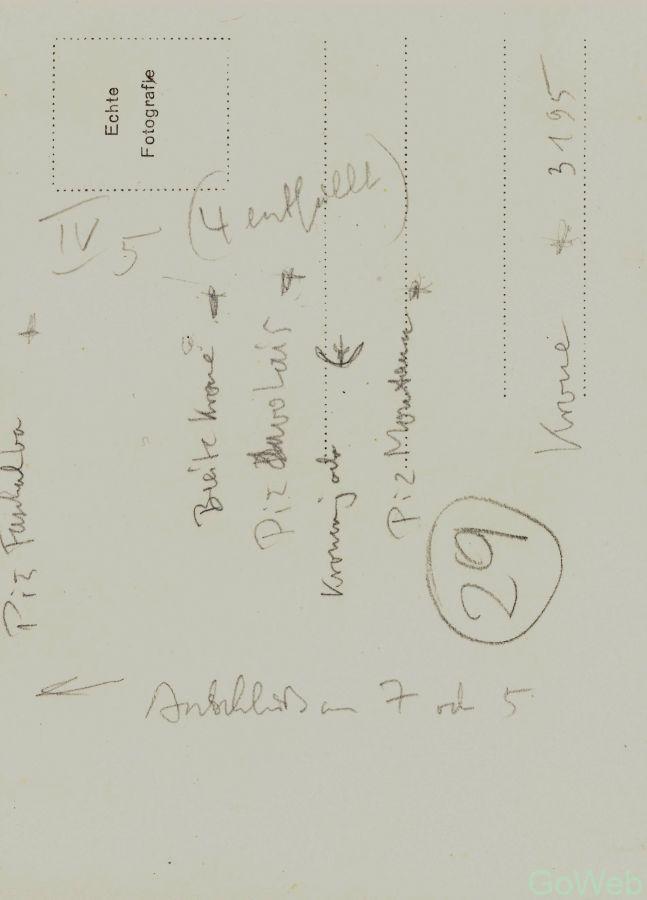 Echte
Fotografie
IV
5
(4 entfällt)
Piz Faschalba +
Breite Krone +
Piz Davo Lais +
Kronenjoch
Piz Montana
Krone + 3195
29
← Anschluß an 7 od 5
GoWeb